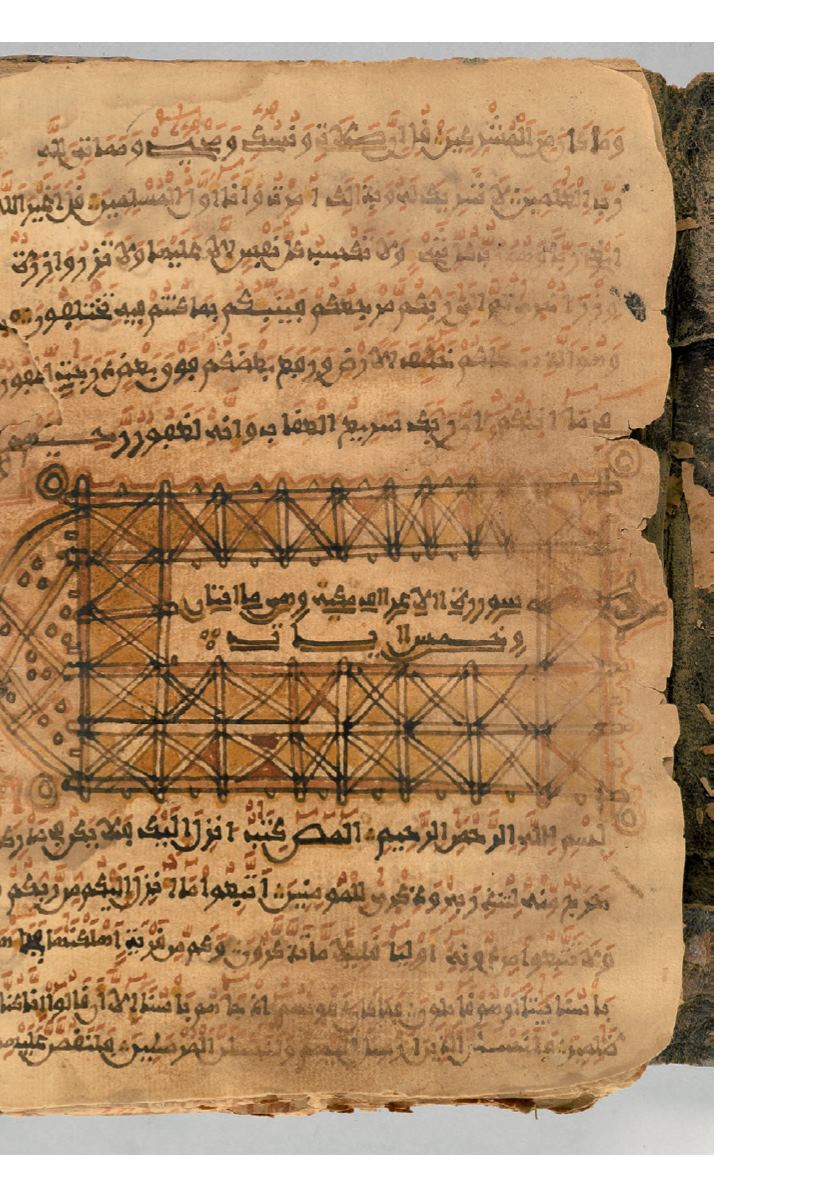 وما كان من المشركين قل ان صلاتي ونسكي ومحياي ومماتي لله
رب العلمين لا شريك له وبذالك امرت وانا اول المسلمين قل اغير الله
ابغي ربا وهو رب كل شيء ولا تكسب كل نفس الا عليها ولا تزر وازرة
وزر اخرى ثم الى ربكم مرجعكم فينبئكم بما كنتم فيه تختلفون
وهو الذي جعلكم خلئف الارض ورفع بعضكم فوق بعض درجت ليبلوكم
في ما اتيكم ان ربك سريع العقاب وانه لغفور رحيم
سورة الاعراف مكية وهي مائتان
وخمس ايات
بسم الله الرحمن الرحيم المص كتب انزل اليك فلا يكن في صدرك
حرج منه لتنذر به وذكرى للمومنين اتبعوا ما انزل اليكم من ربكم
ولا تتبعوا من دونه اوليا قليلا ما تذكرون وكم من قرية اهلكنها فجاءها
باسنا بيتا او هم قايلون فما كان دعويهم اذ جاهم باسنا الا ان قالوا انا كنا
ظلمين فلنسئلن الذين ارسل اليهم ولنسئلن المرسلين فلنقصن عليهم